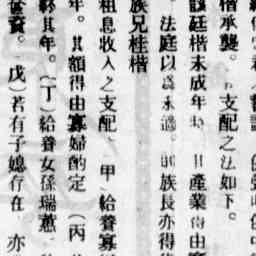 楷承襲。支配之法如下。
該廷楷未成年時。其產業得由寡
法庭以爲未適。則族長亦得
族兄桂楷
租息收入之支配。甲)給養寡
年。其額得由寡婦酌定 (丙)
終其年。(丁)給養女孫瑞蕙
(戊)若有子媳存在。亦